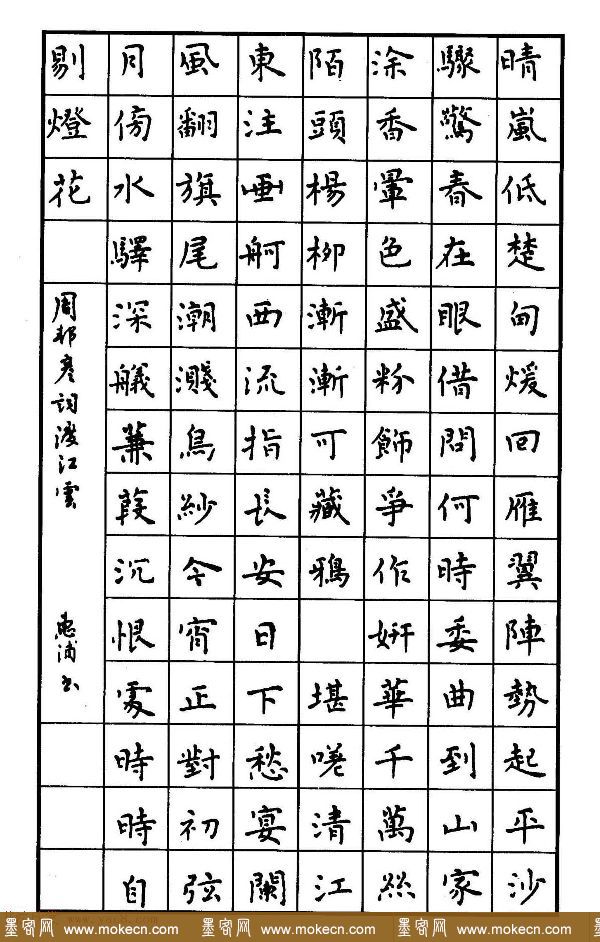 晴嵐低楚甸煖回雁翼陣勢起平沙
驟驚春在眼借問何時委曲到山家
涂香暈色盛粉飾爭作妍華千萬絲
陌頭楊柳漸漸可藏鴉 堪嗟清江
東注画舸西流指長安日下愁宴闌
風翻旗尾潮濺烏紗今宵正對初弦
月傍水驛深艤蒹葭沉恨處時時自
剔燈花
周邦彦詞渡江雲 惠浦书
墨客网 www.mokecn.com 墨客网 www.mokecn.com 墨客网 www.mokecn.com